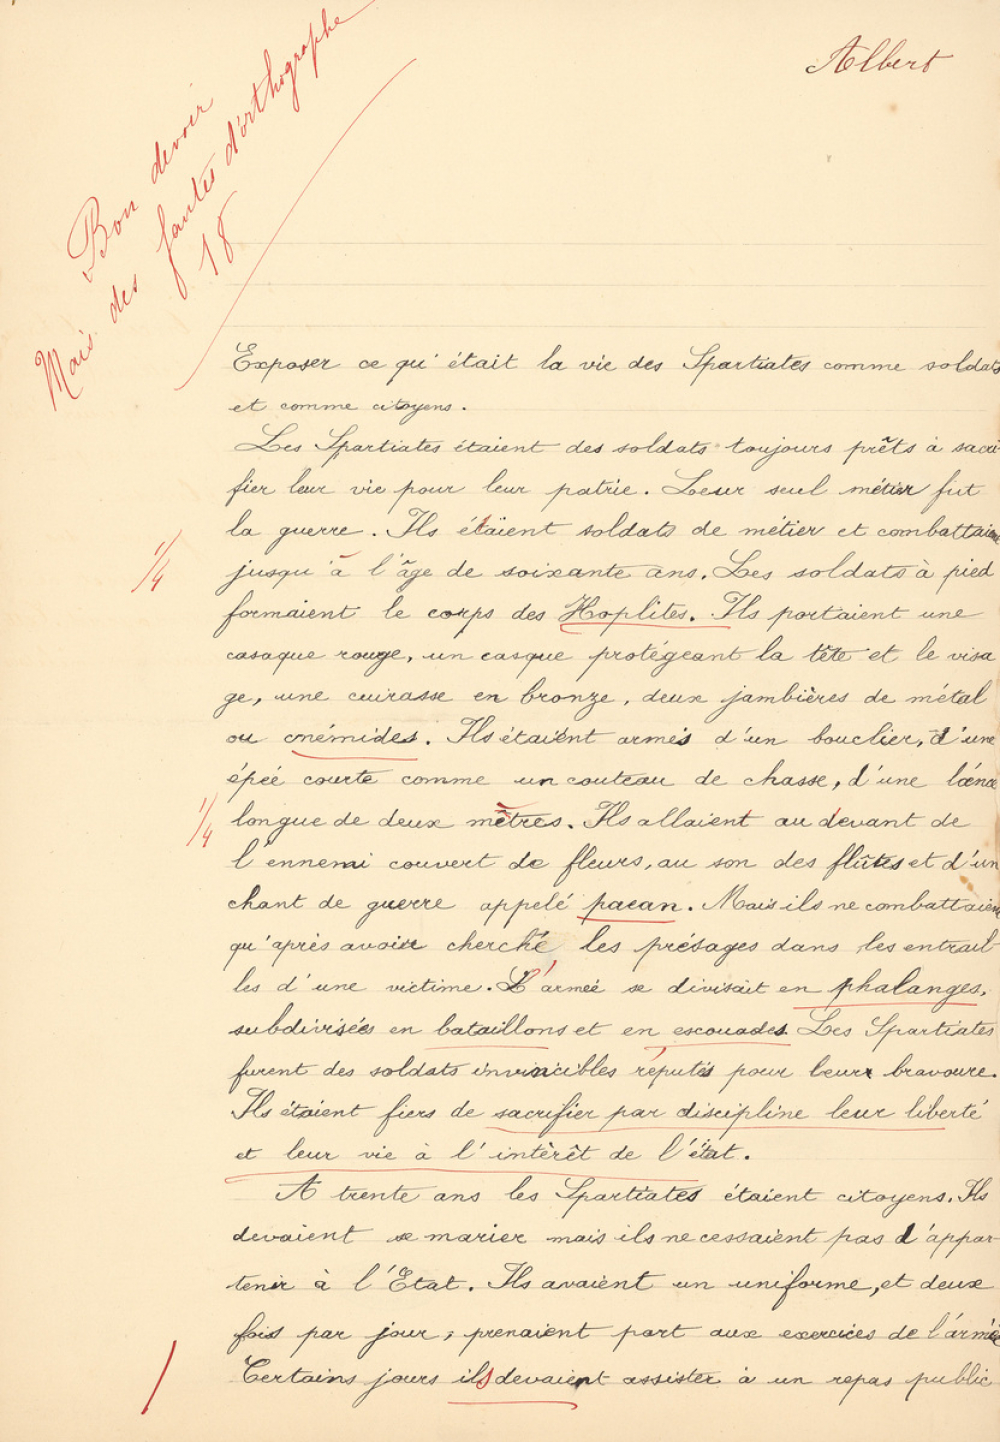 Albert
Bon devoir
Mais des fautes d'orthographe
18
Exposer ce qu'était la vie des Spartiates comme soldats
et comme citoyens.
Les Spartiates étaient des soldats toujours prêts à sacri-
fier leur vie pour leur patrie. Leur seul métier fut
la guerre. Ils étaient soldats de métier et combattaient
1/4
jusqu'à l'âge de soixante ans. Les soldats à pied
formaient le corps des Hoplites. Ils portaient une
casaque rouge, un casque protégeant la tête et le visa
ge, une cuirasse en bronze, deux jambières de métal
ou cnémides. Ils étaient armés d'un bouclier, d'une
épée courte comme un couteau de chasse, d'une lance
1/4
longue de deux mètres. Ils allaient au devant de
l'ennemi couvert de fleurs, au son des flûtes et d'un
chant de guerre appelé paean. Mais ils ne combattaient
qu'après avoir cherché les présages dans les entrail-
les d'une victime. L'armée se divisait en phalanges,
subdivisées en bataillons et en escouades. Les Spartiates
furent des soldats invincibles réputés pour leur bravoure.
Ils étaient fiers de sacrifier par discipline leur liberté
et leur vie à l'intèrêt de l'état.
A trente ans les Spartiates étaient citoyens. Ils
devaient se marier mais ils ne cessaient pas d'appar-
tenir à l'Etat. Ils avaient un uniforme, et deux
fois par jour, prenaient part aux exercices de l'armée
Certains jours ils devaient assister à un repas public